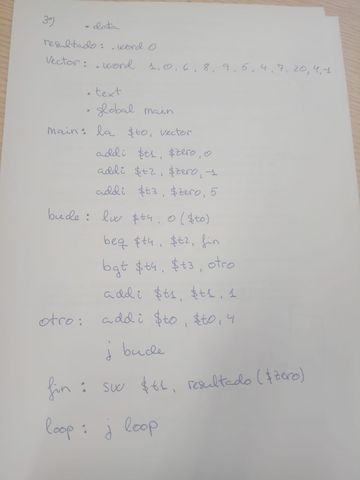 3º)
.data
resultado: .word 0
vector: .word 1, 0, 6, 8, 9, 5, 4, 7, 20, 4, -1
.text
.global main
main: la $t0, vector
addi $t1, $zero, 0
addi $t2, $zero, -1
addi $t3, $zero, 5
bucle: lw $t4, 0($t0)
beq $t4, $t2, fin
bgt $t4, $t3, otro
addi $t1, $t1, 1
otro: addi $t0, $t0, 4
j bucle
fin: sw $t1, resultado($zero)
loop: j loop